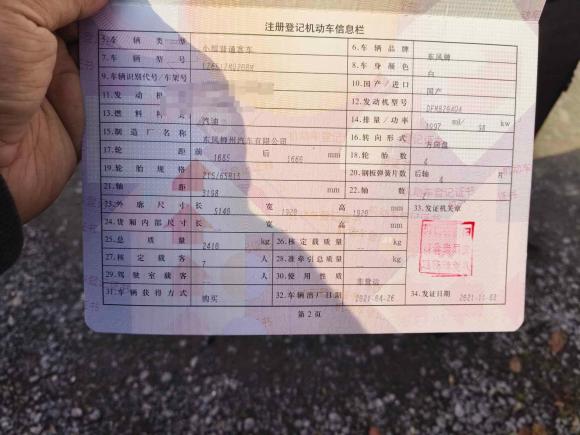 注册登记机动车信息栏
5.车辆类型 小型普通客车 6.车辆品牌 东风牌
7.车辆型号 8.车身颜色 白
9.车辆识别代号/车架号 10.国产/进口 国产
11.发动机 12.发动机型号
13.燃料种 汽油 14.排量/功率 1997 ml/ 98 kw
15.制造厂名称 东风柳州汽车有限公司 16.转向形式 方向盘
17.轮距 前 1685 后 1660 mm 18.轮胎数 4
19.轮胎规格 215/65R15 20.钢板弹簧片数 后轴 4 片
21.轴距 3198 mm 22.轴数
23.外廓尺寸 长 5140 宽 1920 高 1920 mm 33.发证机关章
24.货厢内部尺寸 长 宽 高 mm
25.总质量 2410 kg 26.核定载质量 kg
27.核定载客 7 人 28.准牵引总质量 kg
29.驾驶室载客 人 30.使用性质 非营运
31.车辆获得方式 购买 32.车辆出厂日期 2021-04-26 34.发证日期 2021-11-03
第2页